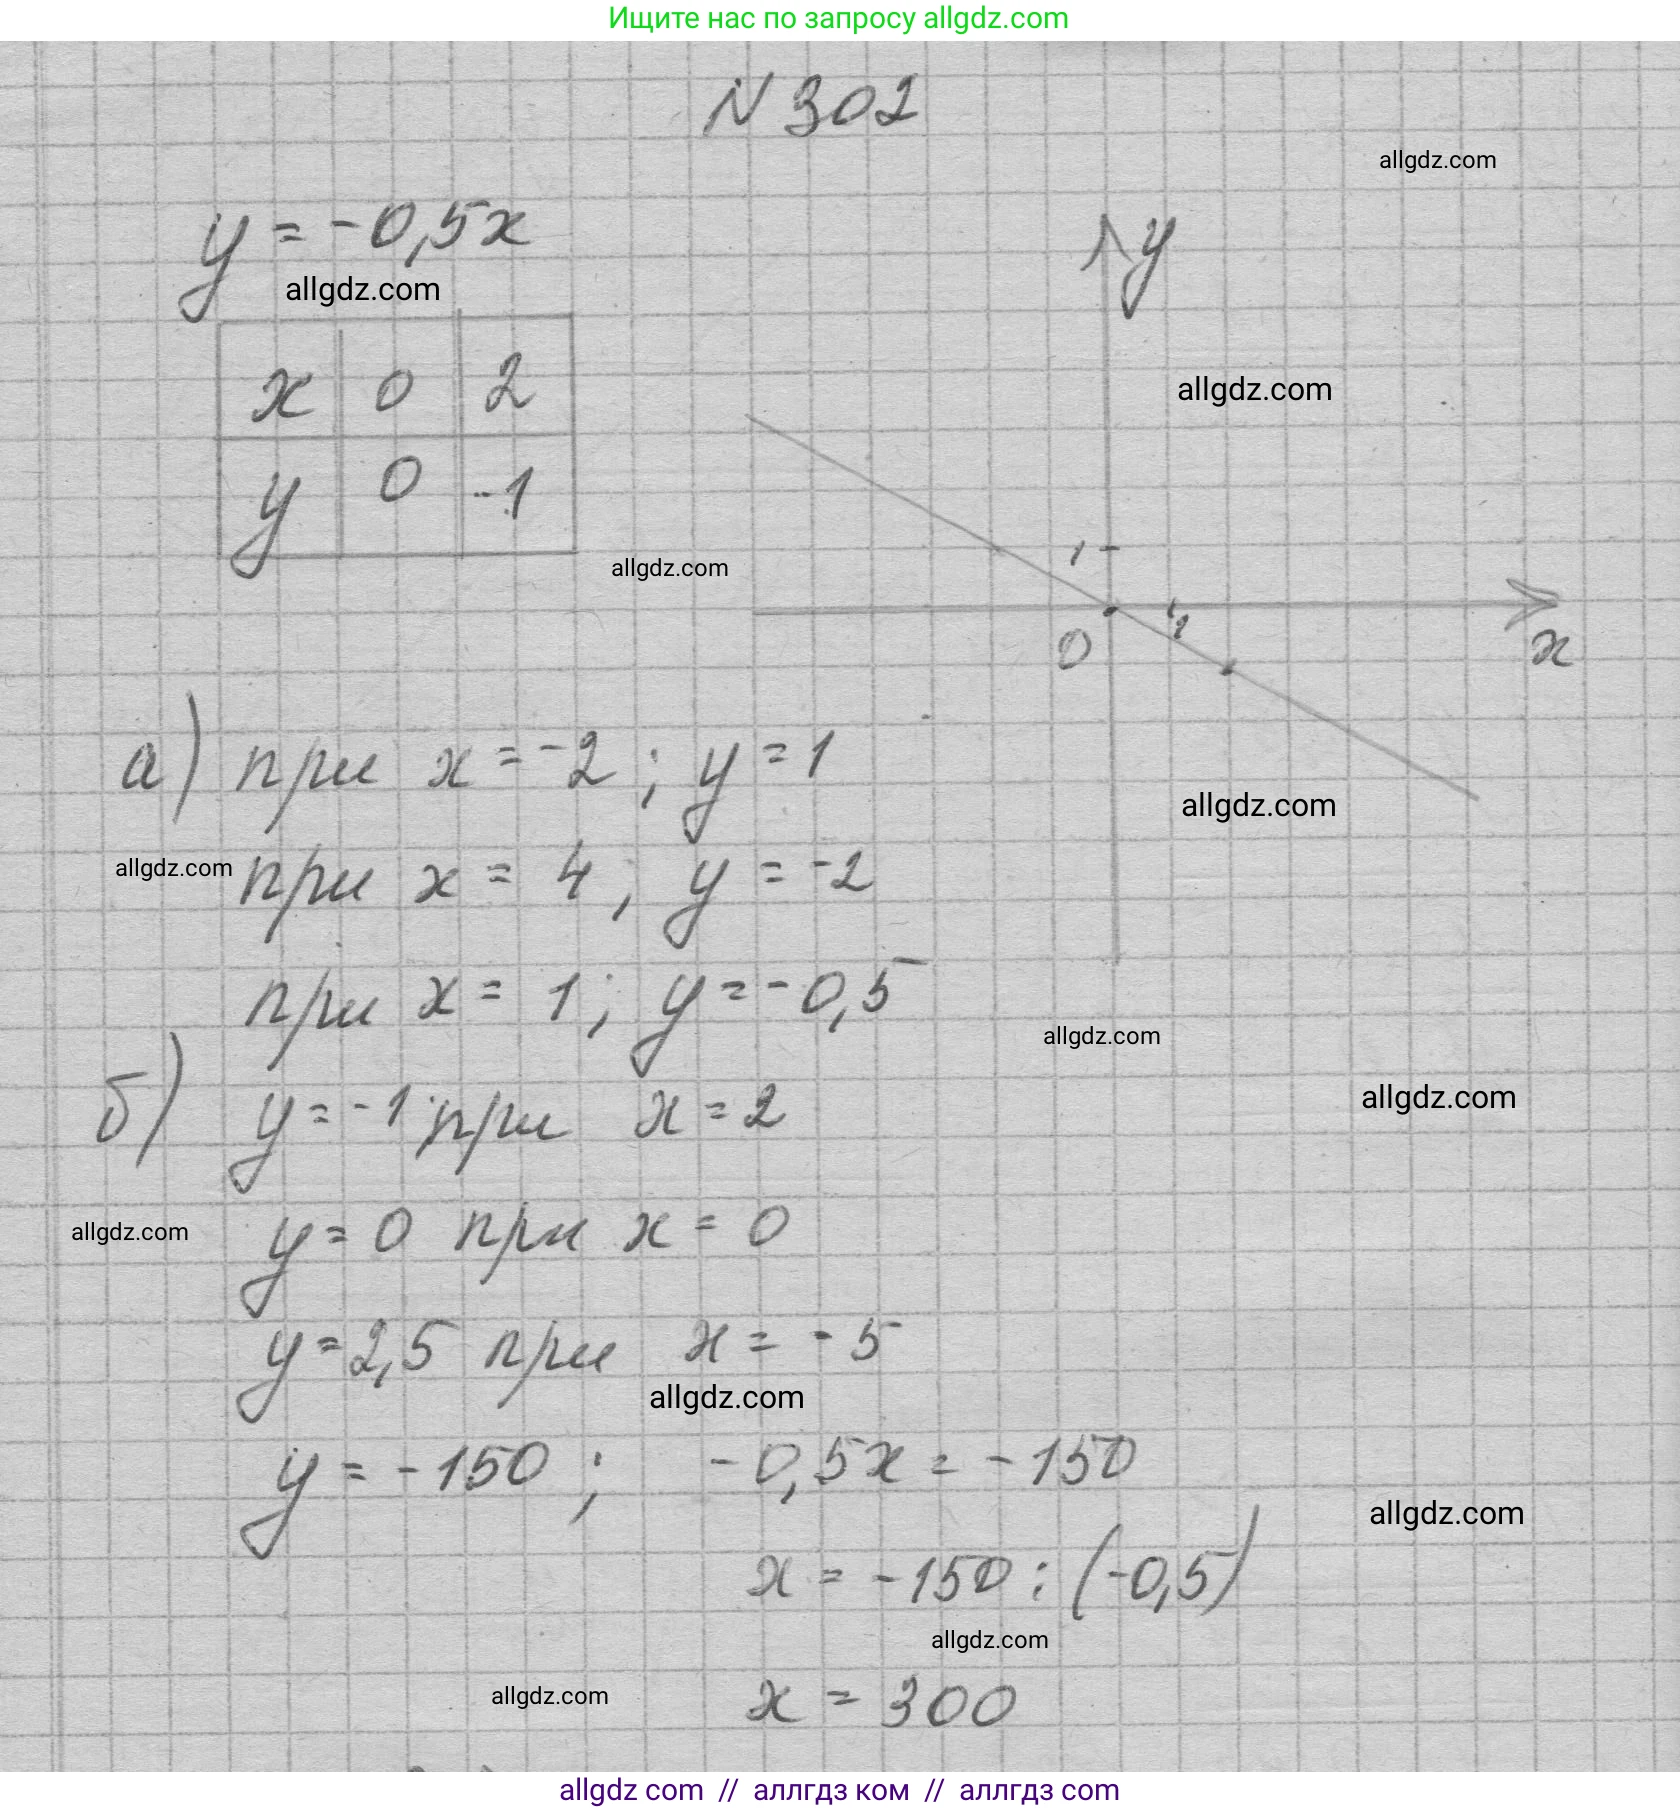 Ищите нас по запросу allgdz.com
N 302
allgdz.com
y = -0,5x
allgdz.com
y
x 0 2
allgdz.com
y 0 -1
allgdz.com
1
1
0
x
а) при x = -2 ; y = 1
allgdz.com
allgdz.com
при x = 4 ; y = -2
при x = 1 ; y = -0,5
allgdz.com
б) y = -1 при x = 2
allgdz.com
allgdz.com
y = 0 при x = 0
y = 2,5 при x = -5
allgdz.com
y = -150 ; -0,5x = -150
allgdz.com
x = -150 : (-0,5)
allgdz.com
allgdz.com
x = 300
allgdz com // аллгдз ком // аллгдз com